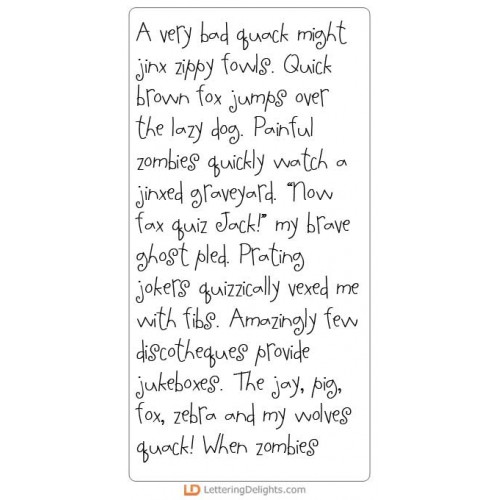 A very bad quack might
jinx zippy fowls. Quick
brown fox jumps over
the lazy dog. Painful
zombies quickly watch a
jinxed graveyard. "Now
fax quiz Jack!" my brave
ghost pled. Prating
jokers quizzically vexed me
with fibs. Amazingly few
discotheques provide
jukeboxes. The jay, pig,
fox, zebra and my wolves
quack! When zombies
LD LetteringDelights.com